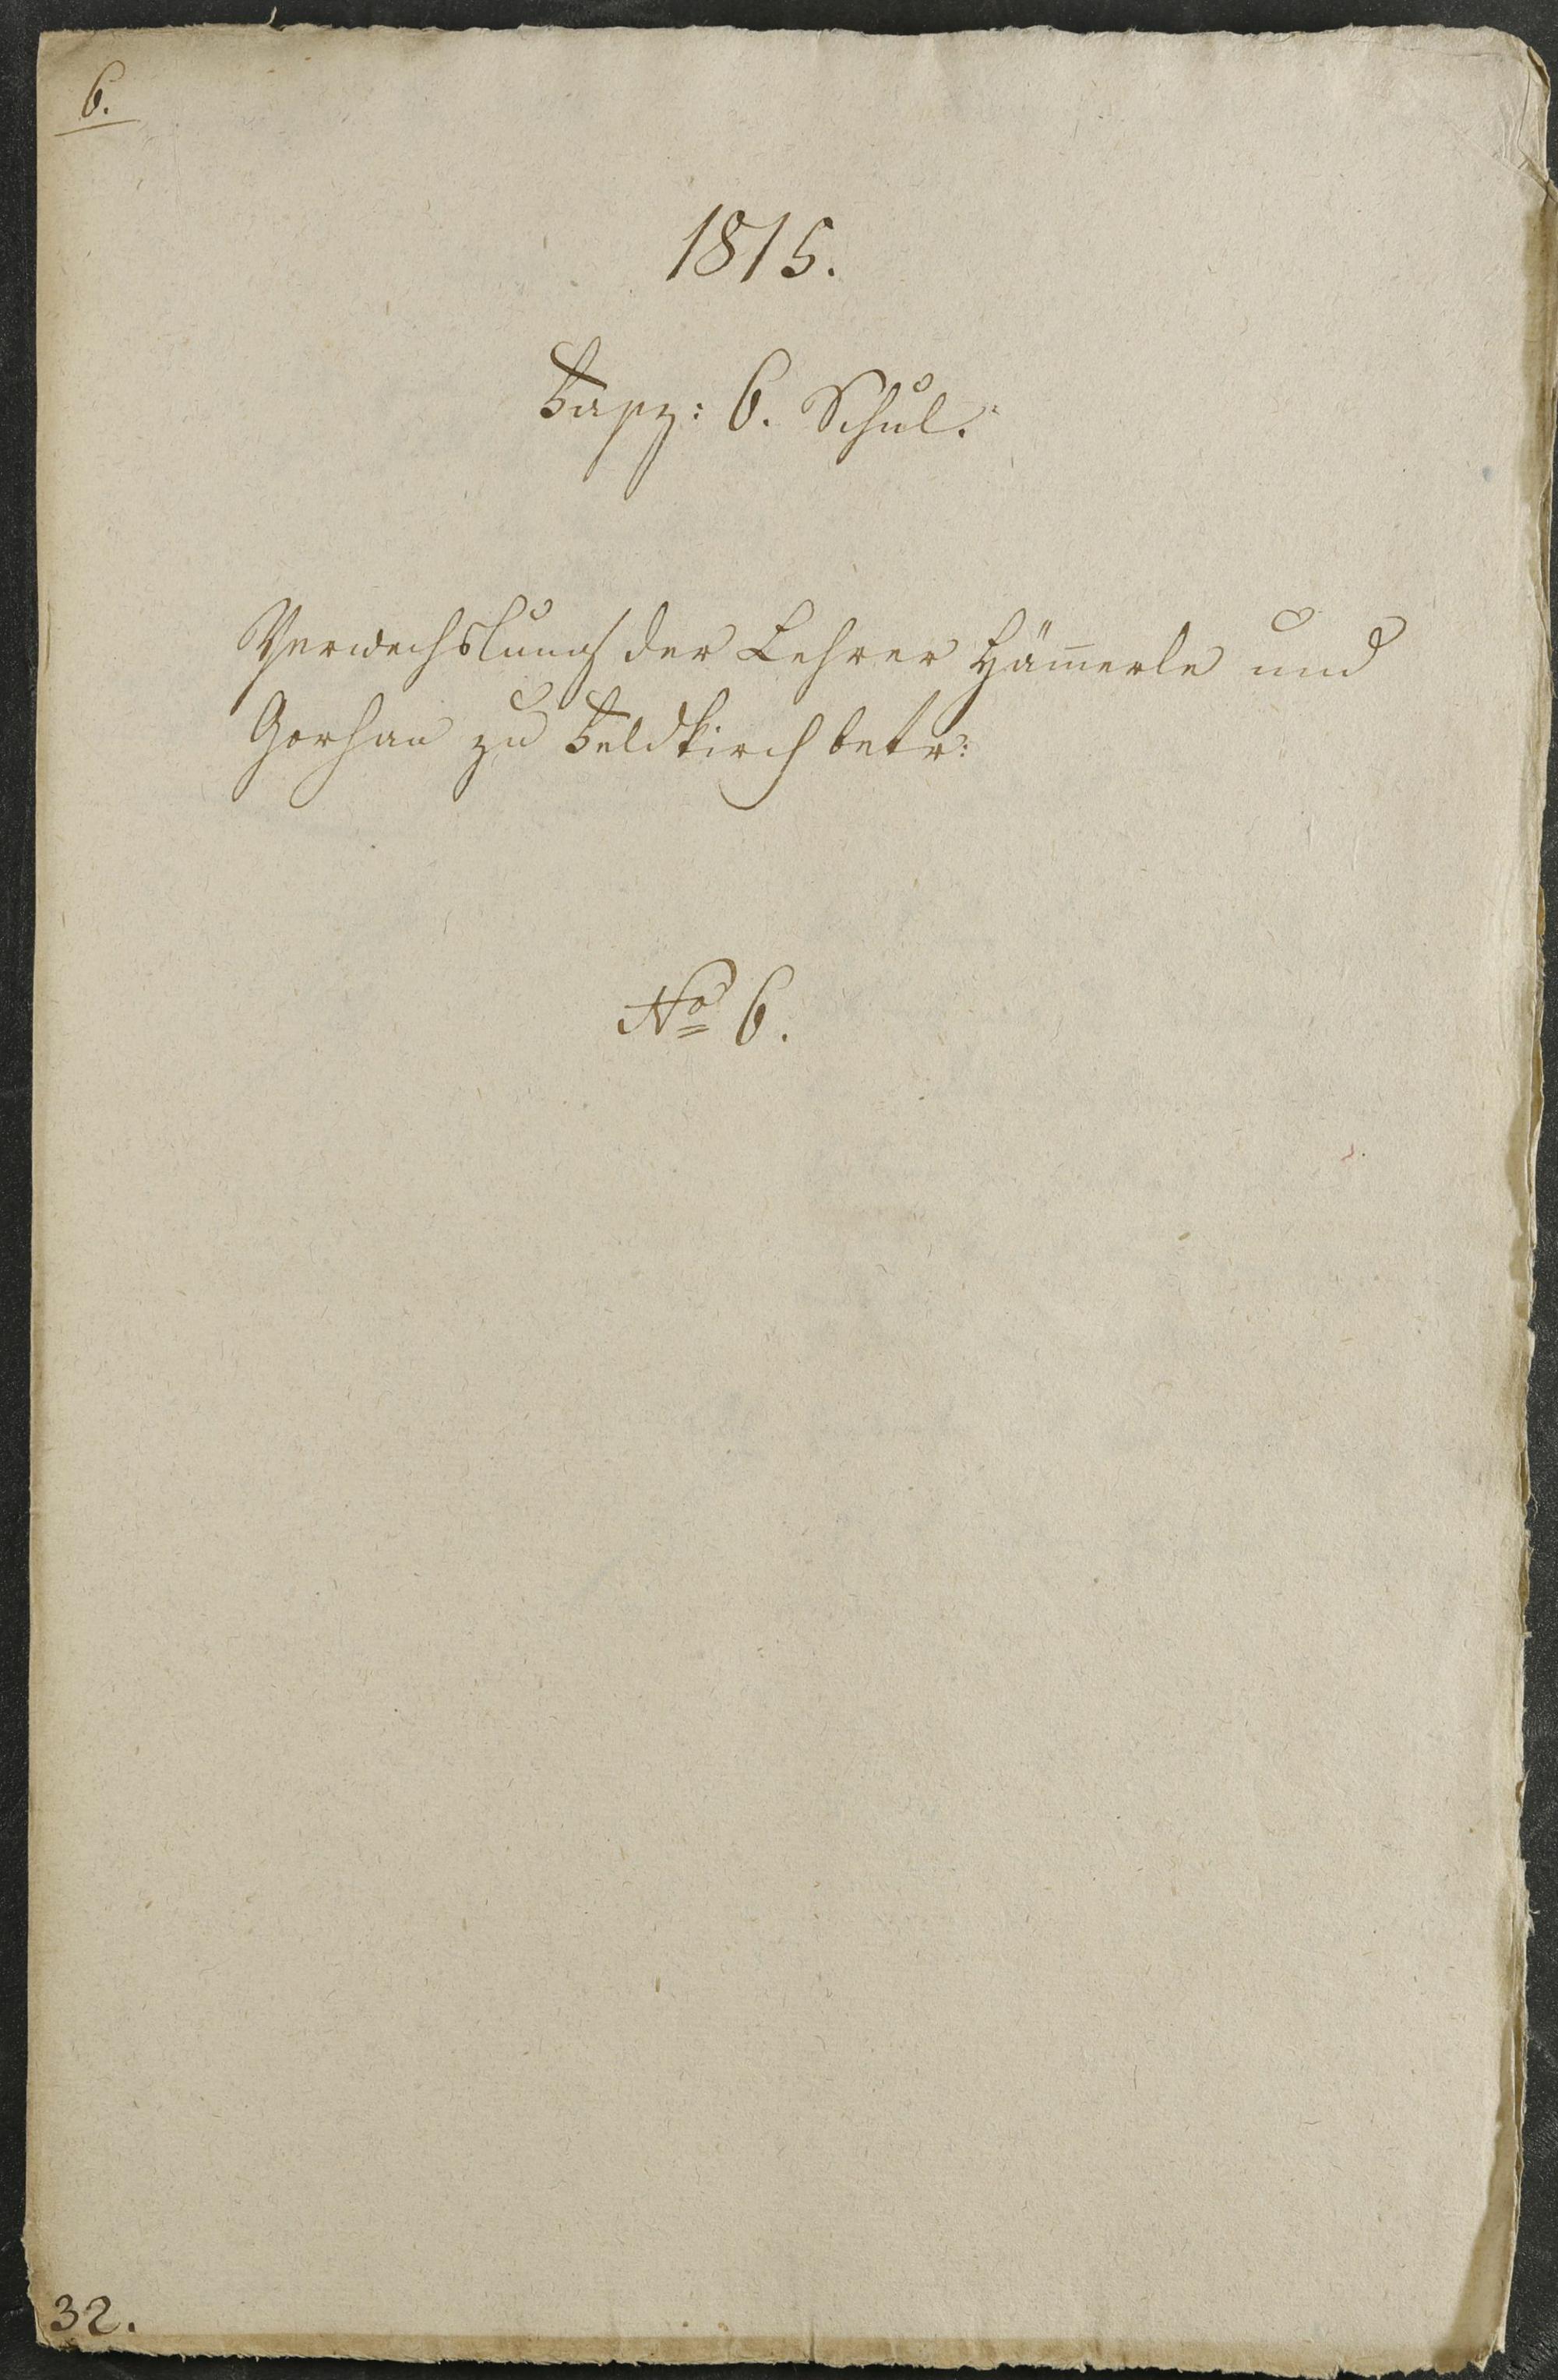 6.
1815.
Fasz: 6. Schul.
Verwechslung der Lehrer Häm̅erle und
Gorhan zu Feldkirch betr:
No 6.
32.